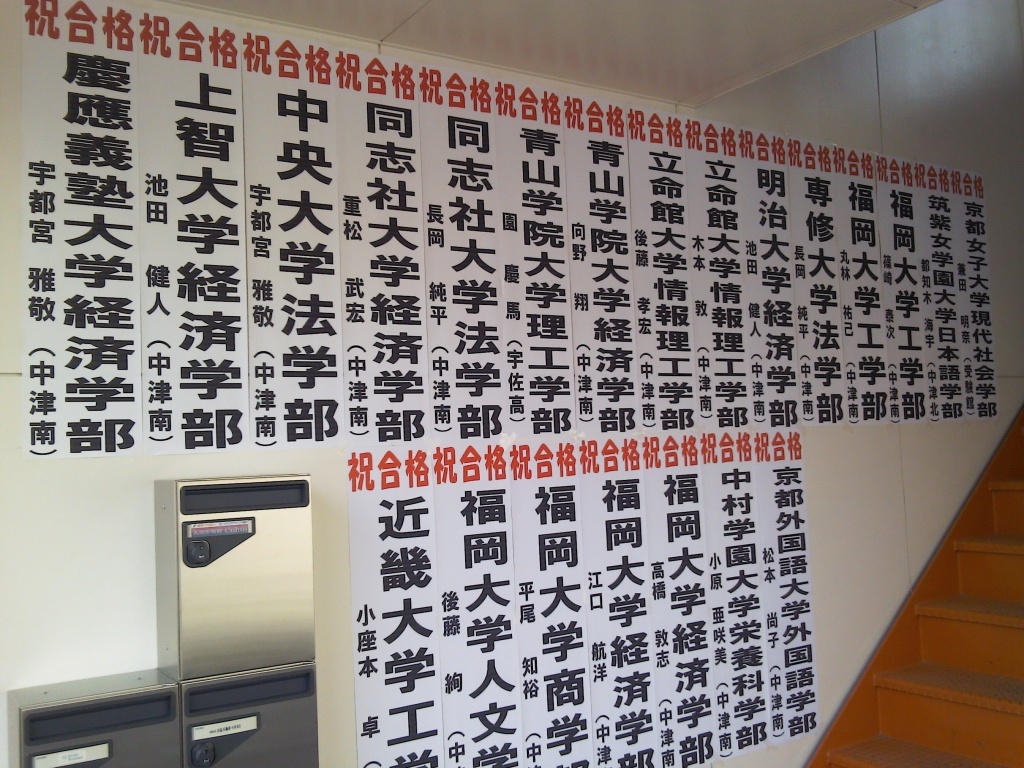 祝合格
慶應義塾大学経済学部
宇都宮 雅敬 (中津南)
祝合格
上智大学経済学部
池田 健人 (中津南)
祝合格
中央大学法学部
宇都宮 雅敬 (中津南)
祝合格
同志社大学経済学部
重松 武宏 (中津南)
祝合格
同志社大学法学部
長岡 純平 (中津南)
祝合格
青山学院大学理工学部
園 慶馬 (宇佐高)
祝合格
青山学院大学経済学部
向野 翔 (中津南)
祝合格
立命館大学情報理工学部
後藤 孝宏 (中津南)
祝合格
立命館大学情報理工学部
木本 敦 (中津南)
祝合格
明治大学経済学部
池田 健人 (中津南)
祝合格
専修大学法学部
長岡 純平 (中津南)
祝合格
福岡大学工学部
丸林 祐己 (中津南)
祝合格
福岡大学工学部
篠崎 泰次 (中津南)
祝合格
筑紫女学園大学日本語学部
都知木 海宇 (中津北)
祝合格
京都女子大学現代社会学部
兼田 明奈 (受験館)
祝合格
近畿大学工学
小座本 卓 (
祝合格
福岡大学人文学
後藤 絢 (中
祝合格
福岡大学商学
平尾 知裕 (中
祝合格
福岡大学経済学
江口 航洋 (中津
祝合格
福岡大学経済学部
高橋 敦志 (中津南
祝合格
中村学園大学栄養科学部
小原 亜咲美 (中津南)
祝合格
京都外国語大学外国語学部
松本 尚子 (中津南)